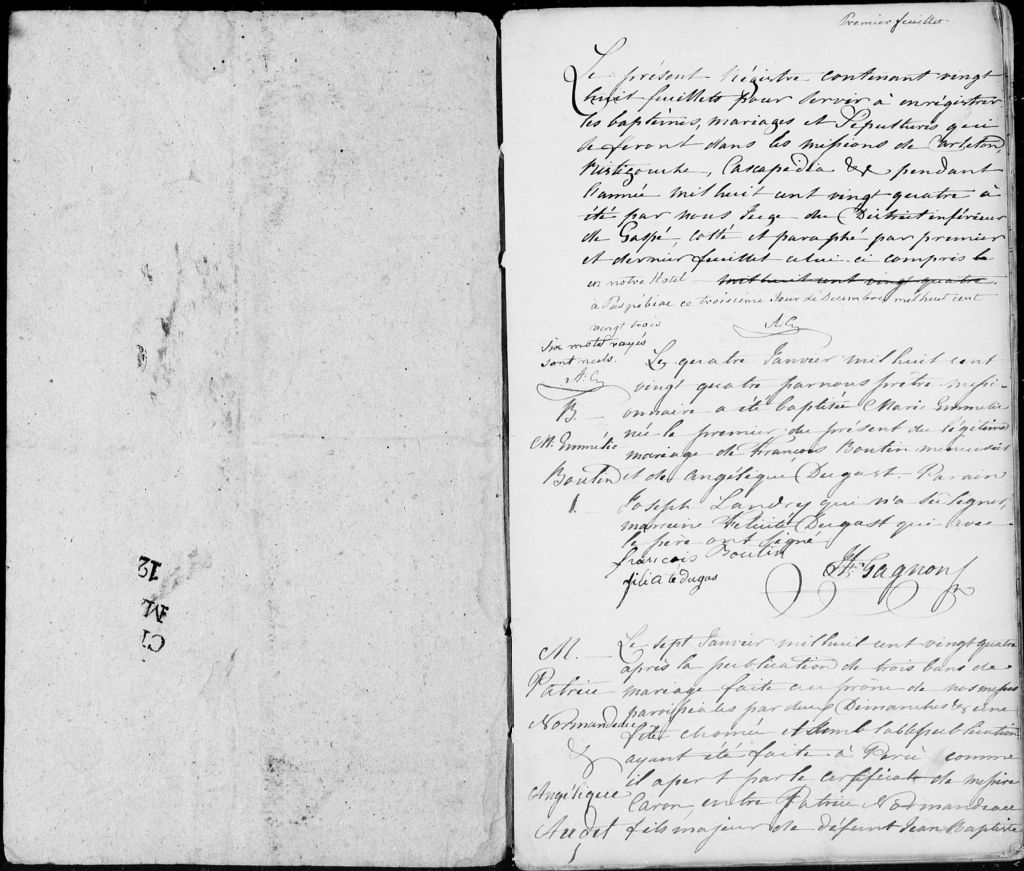 Premier feuillet.
Le présent Régistre contenant vingt
huit feuillets pour servir à enrégistrer
les baptêmes, mariages et Sépultures qui
se feront dans les missions de Carleton,
Ristigouche, Cascapédia &c pendant
l'année mil huit cent vingt quatre a
été par nous Juge du District inférieur
de Gaspé, cotté et paraphé par premier
et dernier feuillet celui ci compris le
en notre Hotel mil huit cent vingt quatre.
à Paspébiac ce troisieme Jour de Décembre mil huit cent
vingt trois
Six mots rayés
sont nuls.
B.
M. Emmélie
Boutin
1
Le quatre Janvier mil huit cent
vingt quatre par nous prêtre missi-
onnaire a été baptisée Marie Emmelie
née le premier du présent du légitime
mariage de François Boutin menuisier
et de Angélique Dugast. Parain
Joseph Landry qui n'a su signer,
marraine Félicité Dugast qui avec
le père ont signé
françois Boutin
félicité dugas
Gagnon
M.
Patrice
Normandeau
&
Angélique
Audet
Le sept Janvier mil huit cent vingt quatre
après la publication de trois bans de
mariage faite au prône de nos messes
paroissiales par deux Dimanches & une
fête chomée et semblable publication
ayant été faite à Percé comme
il apert par le certificat de messire
Caron, entre Patrice Normandeau
fils majeur de défunt Jean Baptiste
C1
M
12